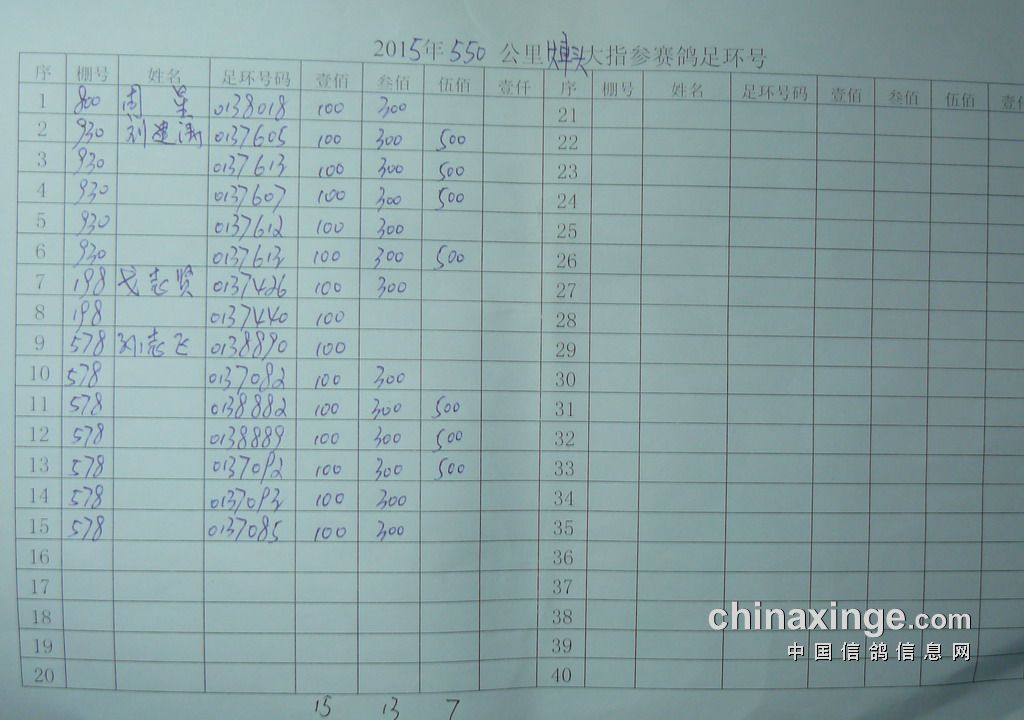 2015年550公里 大指参赛鸽足环号
序 棚号 姓名 足环号码 壹佰 叁佰 伍佰 壹仟 序 棚号 姓名 足环号码 壹佰 叁佰 伍佰 壹
1 800 周 0138018 100 300 21
2 930 刘建涛 0137605 100 300 500 22
3 930 0137613 100 300 500 23
4 930 0137607 100 300 500 24
5 930 0137612 100 300 25
6 930 0137613 100 300 500 26
7 198 戈志贤 0137426 100 300 27
8 198 0137440 100 28
9 578 志飞 0138890 100 29
10 578 0137082 100 300 30
11 578 0138882 100 300 500 31
12 578 0138889 100 300 500 32
13 578 0137092 100 300 500 33
14 578 0137093 100 300 34
15 578 0137085 100 300 35
16 36
17 37
18 38
19 39
20 40
15 13 7
chinaxinge.com
中国信鸽信息网